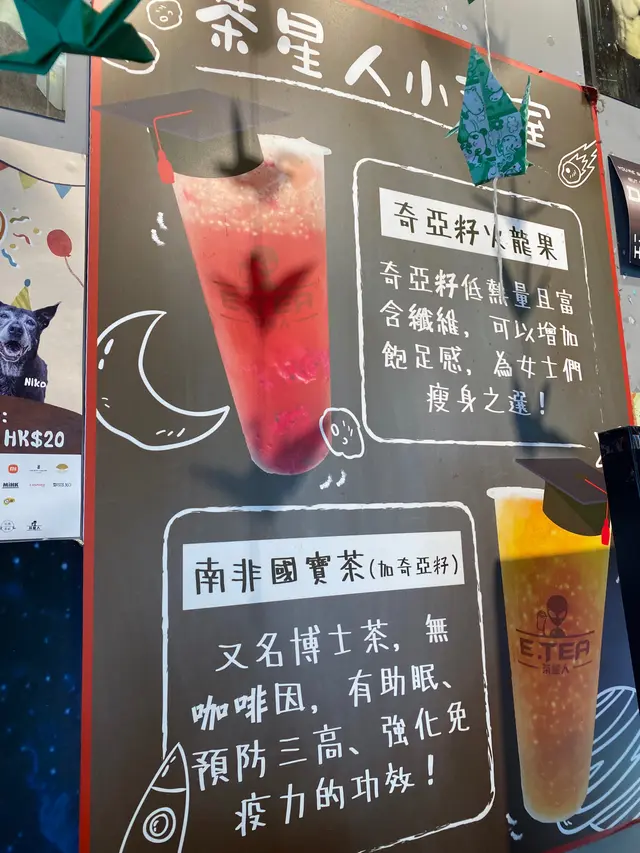 茶星人小
奇亞籽火龍果
奇亞籽低熱量且富
含纖維，可以增加
飽足感，為女士們
瘦身之選！
Niko
HK$20
南非國寶茶(加奇亞籽)
又名博士茶，無
咖啡因，有助眠、
預防三高、強化免
疫力的功效！
E.TEA
茶星人